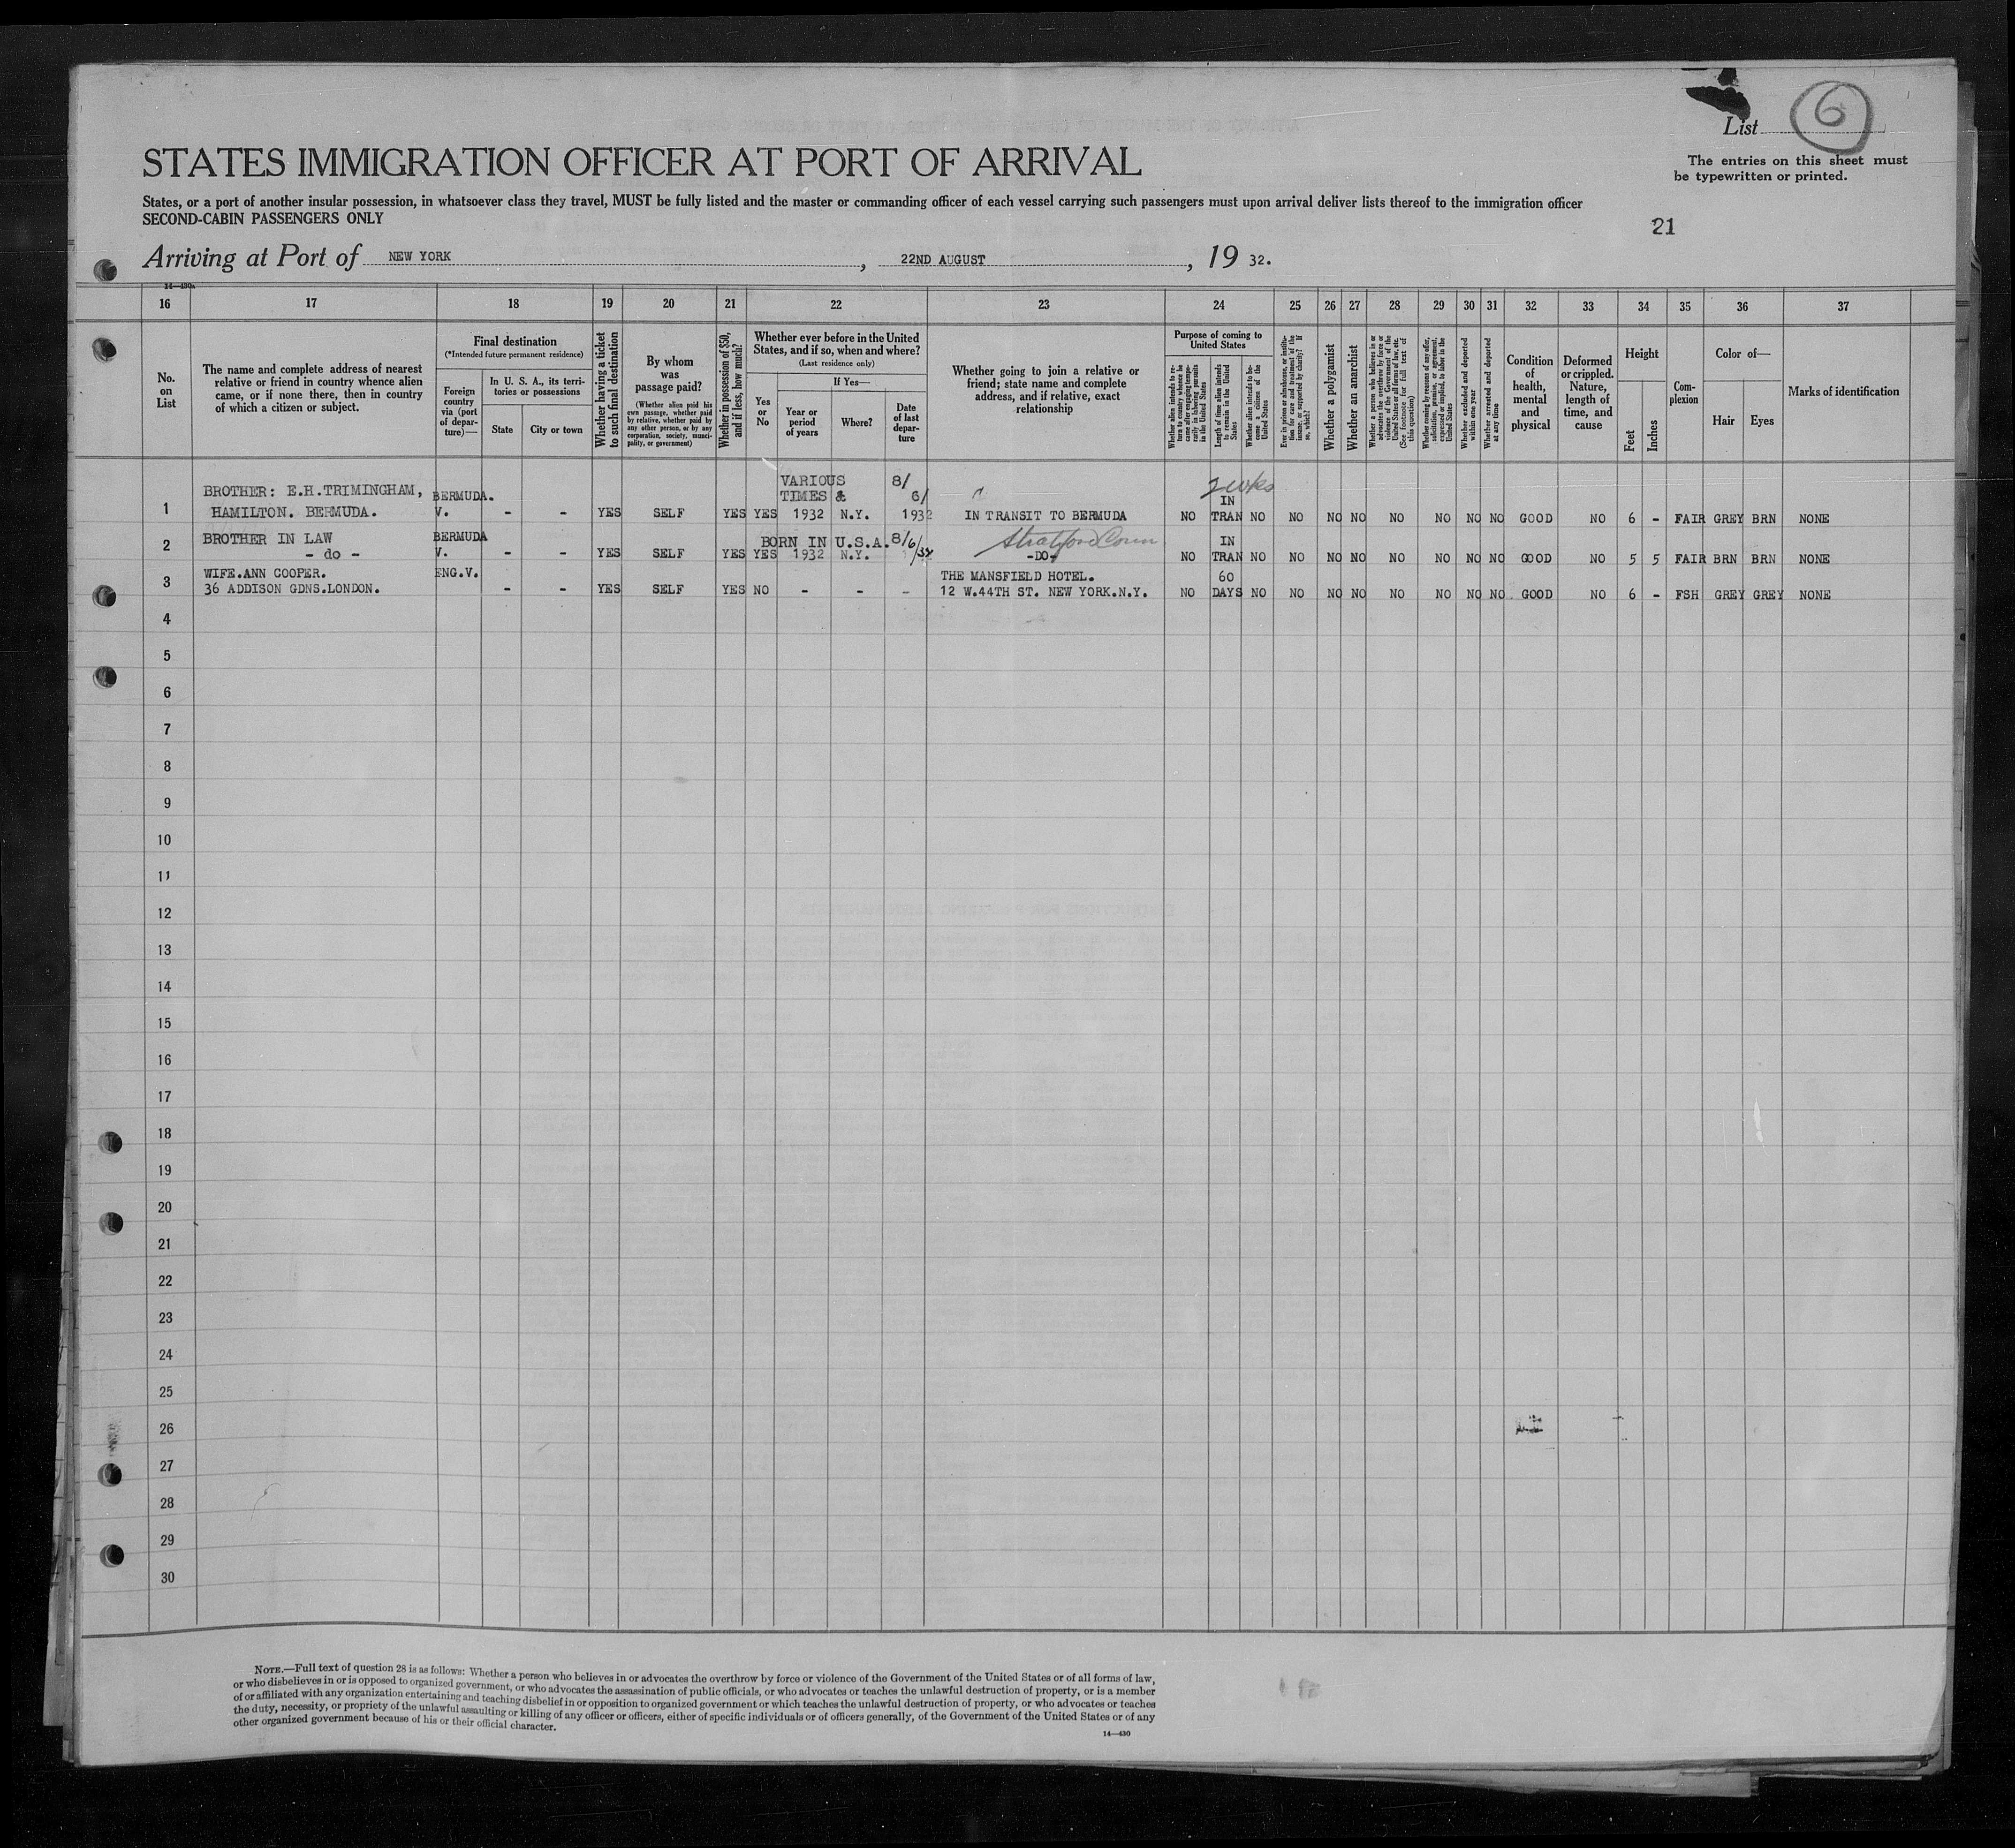 List 6
The entries on this sheet must
be typewritten or printed.
STATES IMMIGRATION OFFICER AT PORT OF ARRIVAL
States, or a port of another insular possession, in whatsoever class they travel, MUST be fully listed and the master or commanding officer of each vessel carrying such passengers must upon arrival deliver lists thereof to the immigration officer
SECOND-CABIN PASSENGERS ONLY
21
Arriving at Port of NEW YORK, 22ND AUGUST, 19 32.
14—430a
16 17 18 19 20 21 22 23 24 25 26 27 28 29 30 31 32 33 34 35 36 37
No. on List
The name and complete address of nearest relative or friend in country whence alien came, or if none there, then in country of which a citizen or subject.
Final destination
(*Intended future permanent residence)
Foreign country via (port of departure)—
In U. S. A., its territories or possessions
State
City or town
Whether having a ticket to such final destination
By whom was passage paid?
(Whether alien paid his own passage, whether paid by relative, whether paid by any other person, or by any corporation, society, municipality, or government)
Whether in possession of $50, and if less, how much?
Whether ever before in the United States, and if so, when and where?
(Last residence only)
Yes or No
If Yes—
Year or period of years
Where?
Date of last departure
Whether going to join a relative or friend; state name and complete address, and if relative, exact relationship
Purpose of coming to United States
Whether alien intends to return to country whence he came after engaging temporarily in laboring pursuits in the United States
Length of time alien intends to remain in the United States
Whether alien intends to become a citizen of the United States
Ever in prison or almshouse, or institution for care and treatment of the insane, or supported by charity? If so, which?
Whether a polygamist
Whether an anarchist
Whether a person who believes in or advocates the overthrow by force or violence of the Government of the United States or all forms of law, etc. (See footnote for full text of this question)
Whether coming by reasons of any offer, solicitation, promise, or agreement, expressed or implied, to labor in the United States
Whether excluded and deported within one year
Whether arrested and deported at any time
Condition of health, mental and physical
Deformed or crippled. Nature, length of time, and cause
Height
Feet
Inches
Complexion
Color of—
Hair
Eyes
Marks of identification
1 BROTHER: E.H.TRIMINGHAM, HAMILTON. BERMUDA. BERMUDA. V. - - YES SELF YES YES VARIOUS TIMES & 1932 N.Y. 8/ 6/ 1932 IN TRANSIT TO BERMUDA NO 2 wks IN TRAN NO NO NO NO NO NO NO NO GOOD NO 6 - FAIR GREY BRN NONE
2 BROTHER IN LAW - do - BERMUDA V. - - YES SELF YES YES BORN IN U.S.A. 1932 N.Y. 8/6/32 Stratford Conn -DO- NO IN TRAN NO NO NO NO NO NO NO NO GOOD NO 5 5 FAIR BRN BRN NONE
3 WIFE.ANN COOPER. 36 ADDISON GDNS.LONDON. ENG.V. - - YES SELF YES NO - - - THE MANSFIELD HOTEL. 12 W.44TH ST. NEW YORK.N.Y. NO 60 DAYS NO NO NO NO NO NO NO NO GOOD NO 6 - FSH GREY GREY NONE
4
5
6
7
8
9
10
11
12
13
14
15
16
17
18
19
20
21
22
23
24
25
26
27
28
29
30
NOTE.—Full text of question 28 is as follows: Whether a person who believes in or advocates the overthrow by force or violence of the Government of the United States or of all forms of law,
or who disbelieves in or is opposed to organized government, or who advocates the assassination of public officials, or who advocates or teaches the unlawful destruction of property, or is a member
of or affiliated with any organization entertaining and teaching disbelief in or opposition to organized government or which teaches the unlawful destruction of property, or who advocates or teaches
the duty, necessity, or propriety of the unlawful assaulting or killing of any officer or officers, either of specific individuals or of officers generally, of the Government of the United States or of any
other organized government because of his or their official character.
14—430